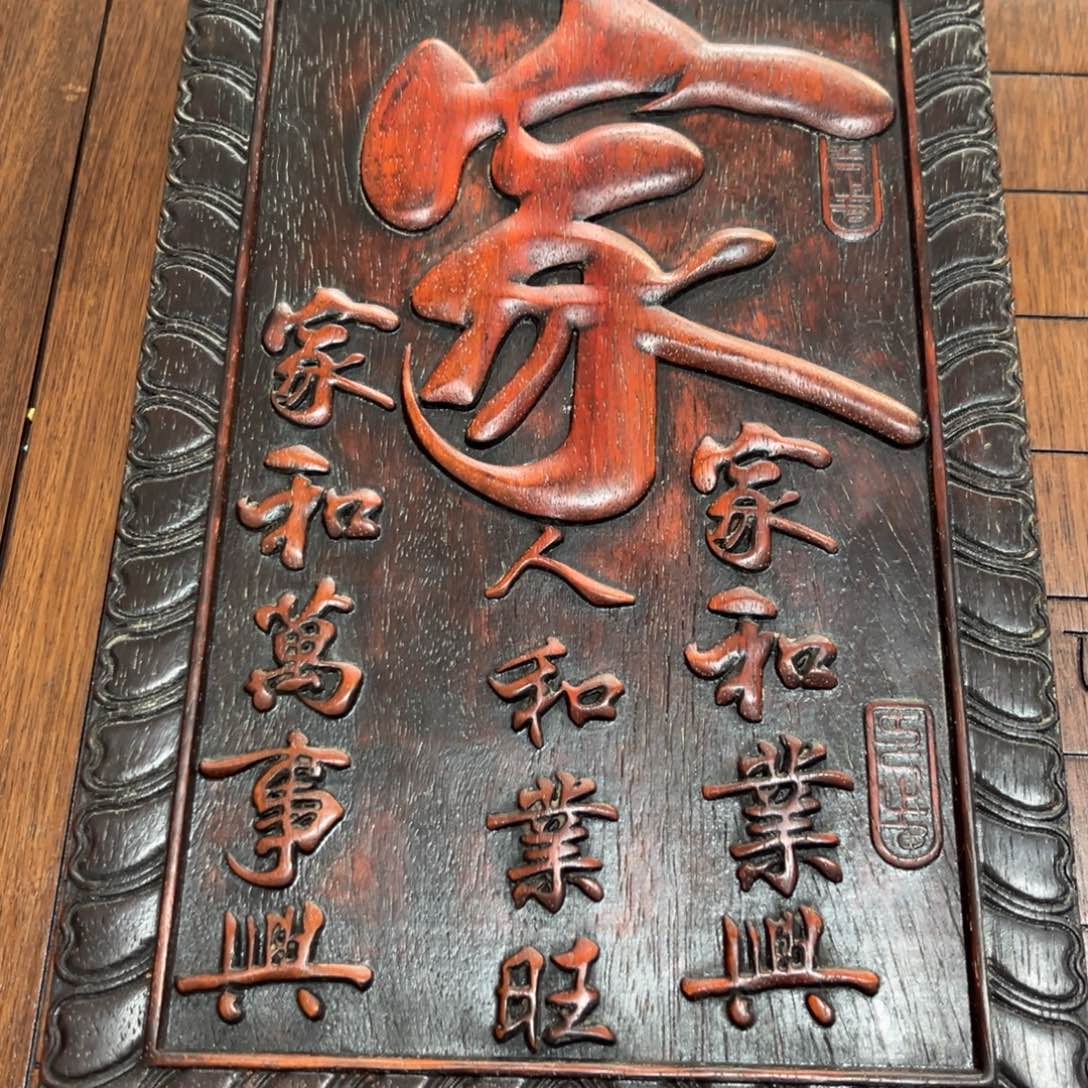 家
家和業興
人和業旺
家和萬事興